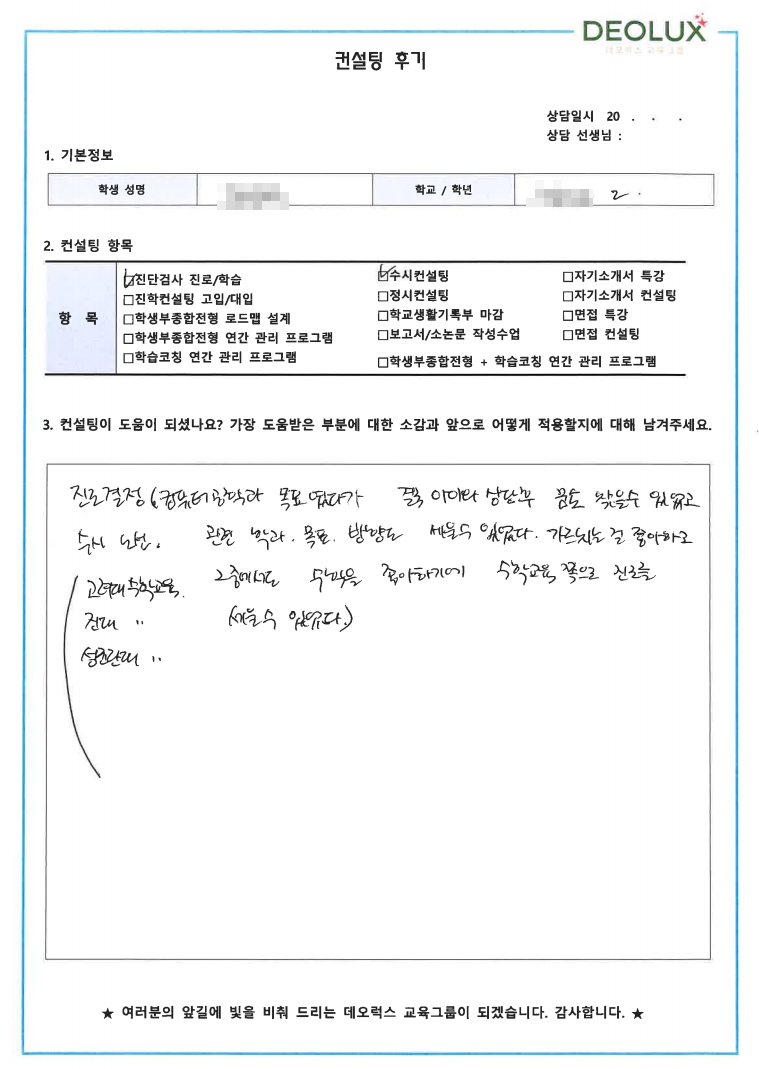 DEOLUX
데오럭스 교육그룹
컨설팅 후기
상담일시 20 . . .
상담 선생님 :
1. 기본정보
학생 성명 학교 / 학년 2.
2. 컨설팅 항목
항 목
☑진단검사 진로/학습 ☑수시컨설팅 □자기소개서 특강
□진학컨설팅 고입/대입 □정시컨설팅 □자기소개서 컨설팅
□학생부종합전형 로드맵 설계 □학교생활기록부 마감 □면접 특강
□학생부종합전형 연간 관리 프로그램 □보고서/소논문 작성수업 □면접 컨설팅
□학습코칭 연간 관리 프로그램 □학생부종합전형 + 학습코칭 연간 관리 프로그램
3. 컨설팅이 도움이 되셨나요? 가장 도움받은 부분에 대한 소감과 앞으로 어떻게 적용할지에 대해 남겨주세요.
진로결정 (컴퓨터공학과 목표였다가 아이와 상담후 꿈도 찾을수 있었고
수시 관련 학과. 목표. 방향도 세울수 있었다. 가르치는 걸 좋아하고
고려대 수학교육. 그중에서도 수학을 좋아하기에 수학교육 쪽으로 진로를
전대 〃 (세울수 있었다.)
성균관대 〃
★ 여러분의 앞길에 빛을 비춰 드리는 데오럭스 교육그룹이 되겠습니다. 감사합니다. ★